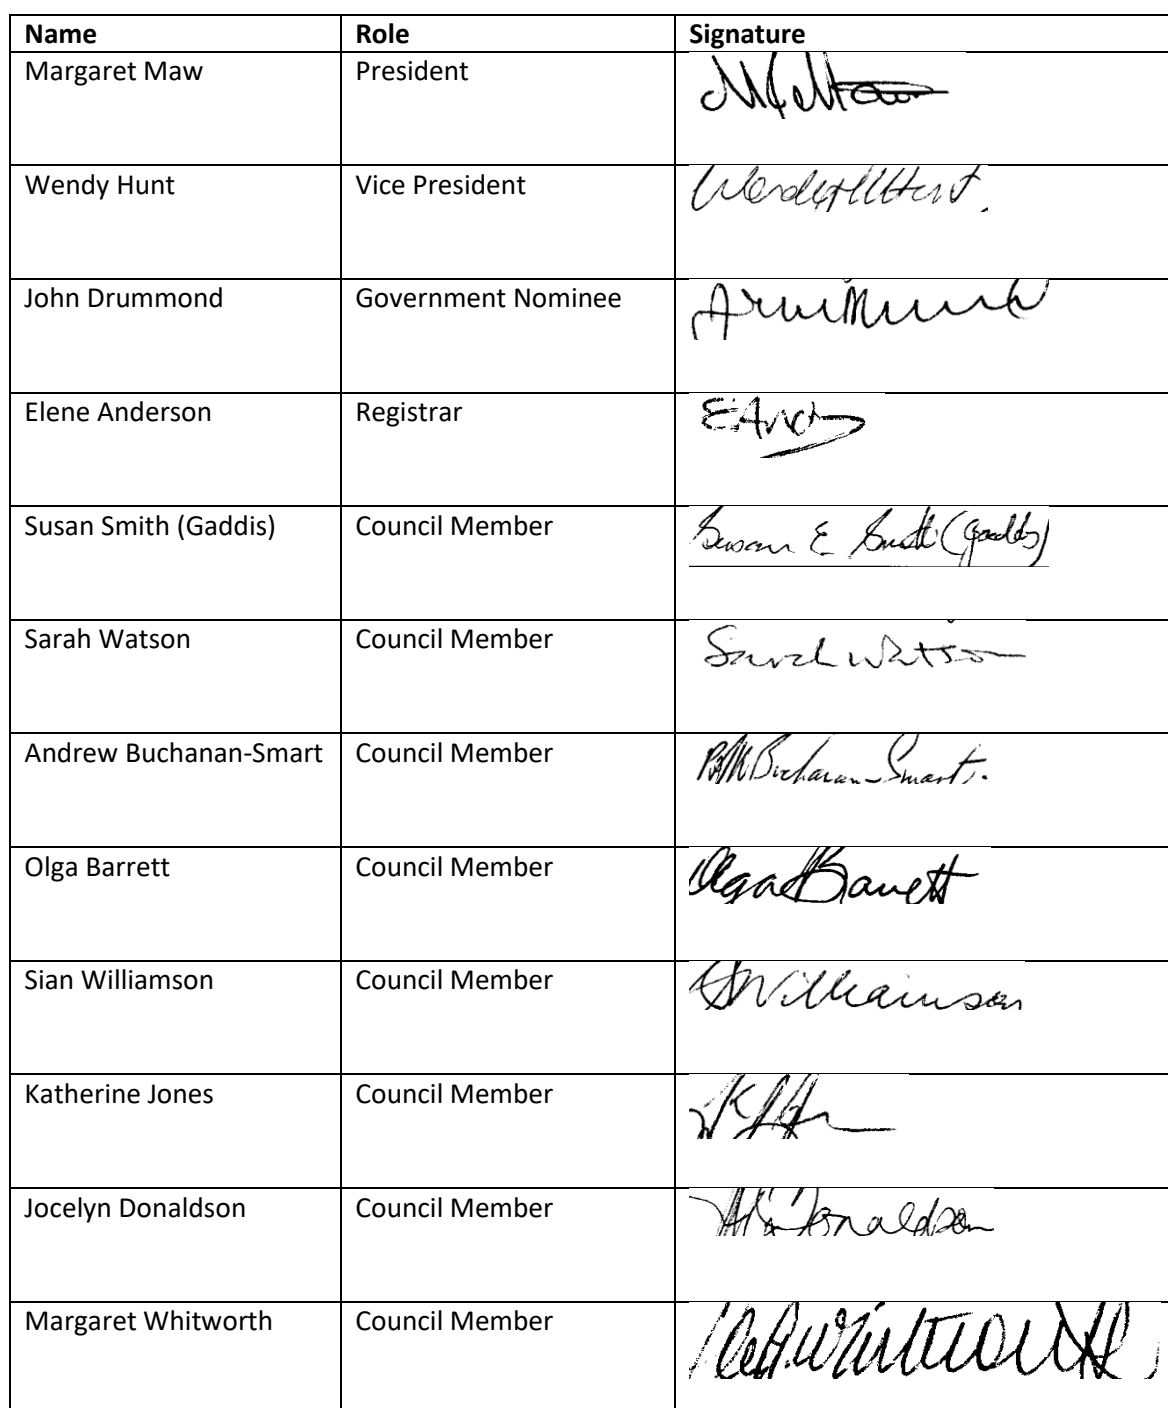 Name Role Signature
Margaret Maw President
Wendy Hunt Vice President
John Drummond Government Nominee
Elene Anderson Registrar
Susan Smith (Gaddis) Council Member Susan E Smith (Gaddis)
Sarah Watson Council Member Sarah Watson
Andrew Buchanan-Smart Council Member Buchanan-Smart.
Olga Barrett Council Member Olga Barrett
Sian Williamson Council Member SWilliamson
Katherine Jones Council Member
Jocelyn Donaldson Council Member Donaldson
Margaret Whitworth Council Member